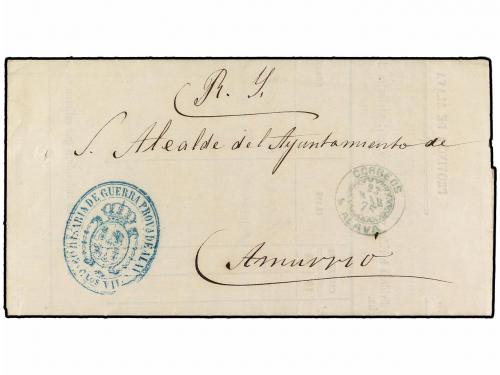 R. Y.
S. Alcalde del Ayuntamiento de
Amurrio
COMISARIA DE GUERRA PROVA DE ALAVA
CARLOS VII
CORREOS
ALAVA